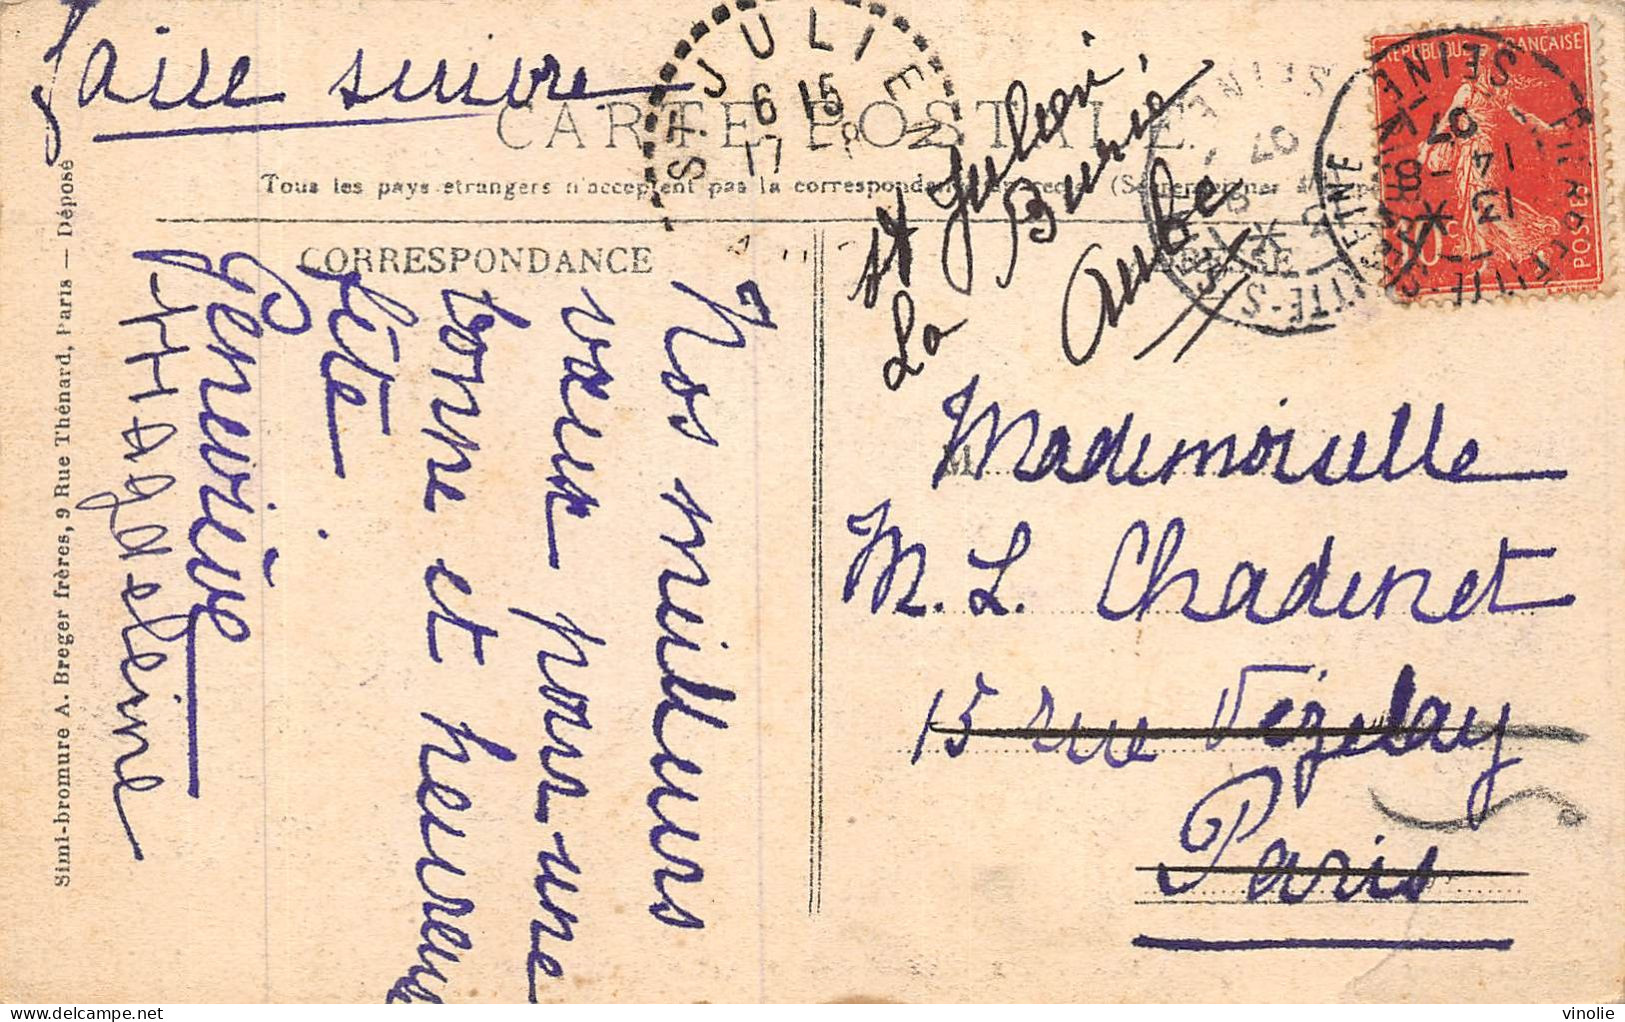 faire suivre
CARTE POSTALE
Tous les pays étrangers n'acceptent pas la correspondance
CORRESPONDANCE
Nos meilleurs
vœux pour une
bonne et heureuse
fête.
Geneviève
Magdeleine
Simi-bromure A. Breger frères, 9 Rue Thénard, Paris — Déposé
ST JULIEN
6 15
17
St Julien,
La
Aube
Mademoiselle
M. L. Chadenet
15 rue Vézelay
Paris
RÉPUBLIQUE FRANÇAISE
POSTES
SEINE
13
14
07
vinolie